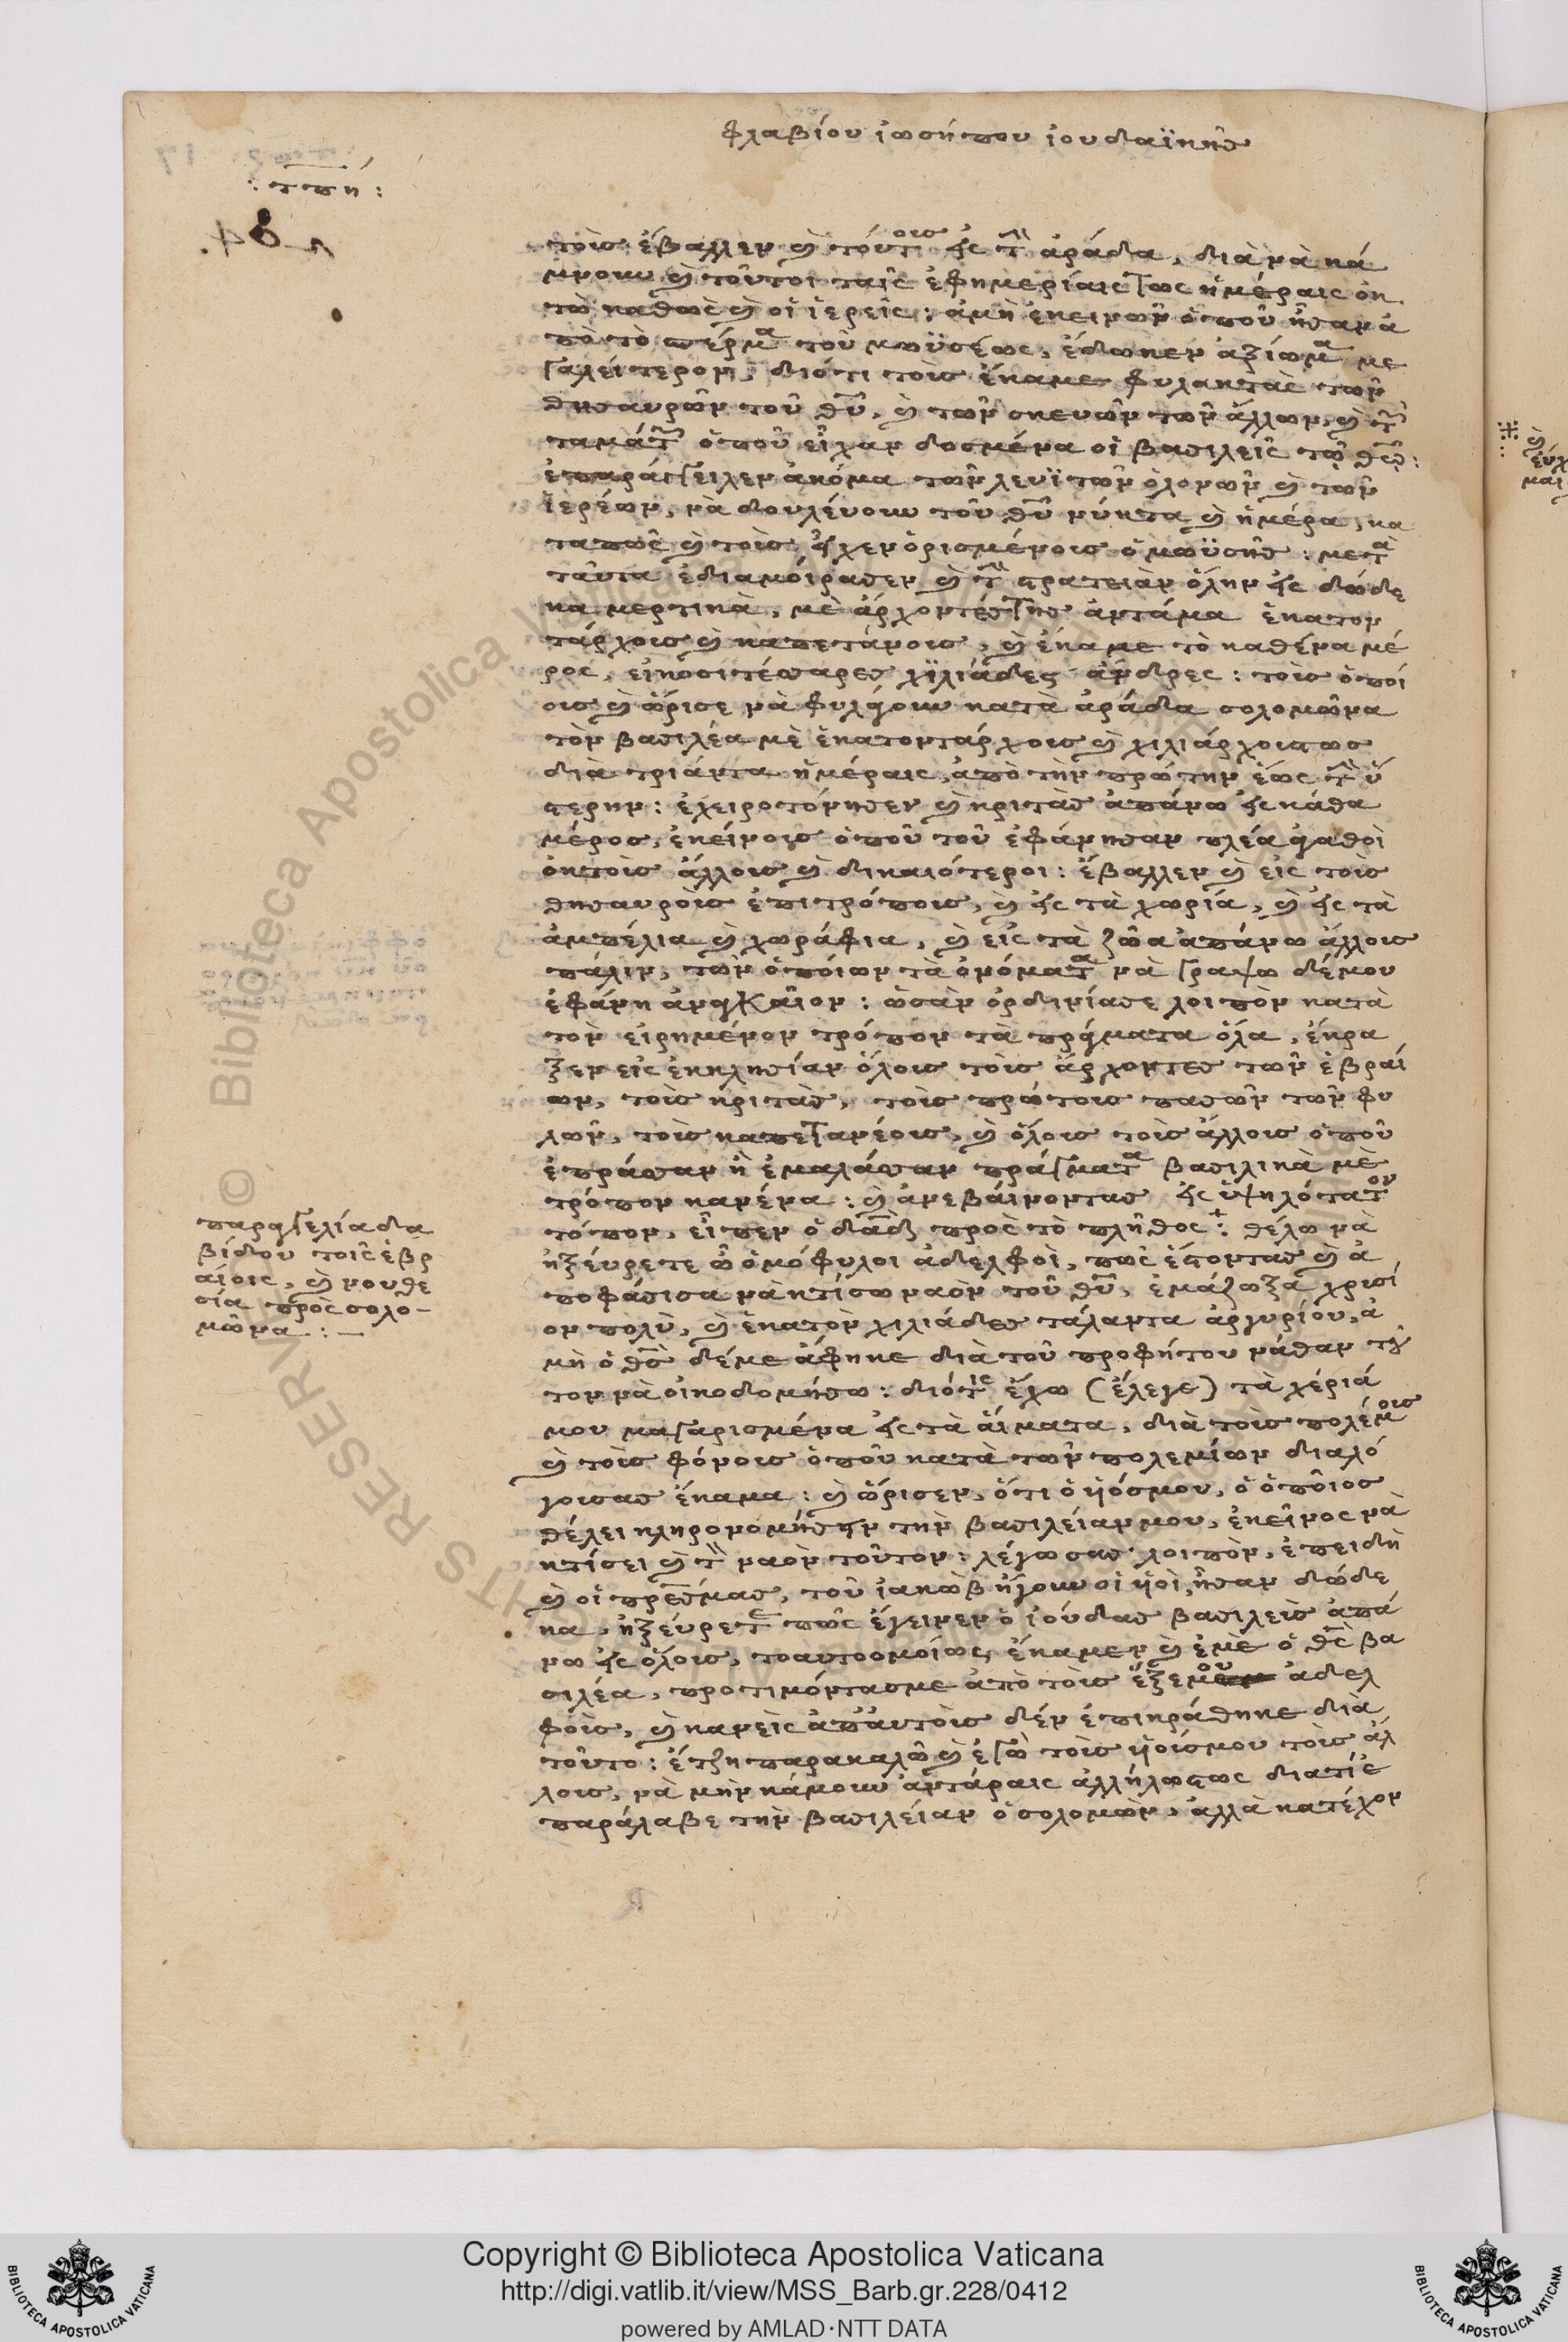 φλαβίου ἰωσήπου ἰουδαϊκῆς
: τπη :
τοὺς ἔβαλλεν καὶ τούτους εἰς τὴν ἀράδα, διὰ νὰ κά
μνουν καὶ τοῦτοι ταῖς ἐφημερίαις τως ἡμέραις ὀκ
τὼ καθὼς καὶ οἱ ἱερεῖς: ἀμὴ ἐκεινῶν ὁποῦ ἦσαν ἀ
πὸ τὸ σπέρμα τοῦ μωϋσέως, ἔδωκεν ἀξίωμα με
γαλείτερον, διότι τοὺς ἔκαμε φυλακτὰς τῶν
θησαυρῶν τοῦ θῦ, καὶ τῶν σκευῶν τῶν ἄλλων, καὶ τῶν
ταμάτων ὁποῦ εἶχαν δοσμένα οἱ βασιλεῖς τῷ θεῷ:
ἐπαράγγειλεν ἀκόμα τῶν λευϊτῶν ὁλονῶν καὶ τῶν
ἱερέων, νὰ δουλεύουν τοῦ θῦ νύκτα καὶ ἡμέρα, κα
ταπῶς καὶ τοὺς εἶχεν ὁρισμένους ὁ μωϋσῆς: μετὰ
ταῦτα ἐδιαμοίρασεν καὶ τὴν στρατειὰν ὅλην εἰς δώδε
κα μερτικὰ, μὲ ἄρχοντές της ἀντάμα ἑκατον
τάρχους καὶ καπετάνους, καὶ ἔκαμε τὸ καθένα μέ
ρος, εἰκοσιτέσσαρες χϊλιάδες ἄνδρες: τοὺς ὁποί
ους καὶ ὥρισε νὰ φυλάγουν κατὰ ἀράδα σολομῶνα
τὸν βασιλέα μὲ ἑκατοντάρχους καὶ χιλιάρχους τως
διὰ τριάντα ἡμέραις, ἀπὸ τὴν πρώτην ἕως τὴν ὕ
στερην: ἐχειροτόνησεν καὶ κριτὰς ἀπάνω εἰς κάθα
μέρος, ἐκείνους ὁποῦ τοῦ ἐφάνησαν πλέα ἀγαθοὶ
ἐκ τοὺς ἄλλους καὶ δικαιότεροι: ἔβαλλεν καὶ εἰς τοὺς
θησαυροὺς ἐπιτρόπους, καὶ εἰς τὰ χωρία, καὶ εἰς τὰ
ἀμπέλια καὶ χωράφια, καὶ εἰς τὰ ζῶα ἀπάνω ἄλλους
πάλιν, τῶν ὁποίων τὰ ὀνόματα νὰ γράψω δέμου
ἐφάνη ἀναγκαῖον: ὡσὰν ὀρδινίασε λοιπὸν κατὰ
τὸν εἰρημένον τρόπον τὰ πράγματα ὅλα, ἔκρα
ξεν εἰς ἐκκλησίαν ὅλους τοὺς ἄρχοντες τῶν ἑβραί
ων, τοὺς κριτὰς, τοὺς πρώτους πασῶν τῶν φυ
λῶν, τοὺς καπεταναίους, καὶ ὅλους τοὺς ἄλλους ὁποῦ
ἐπράσσαν ἢ ἐμαλάσσαν πράγματα βασιλικὰ μὲ
τρόπον κανένα: καὶ ἀνεβαίνοντας εἰς ὑψηλότατον
τόπον, εἶπεν ὁ δᾶδ πρὸς τὸ πλῆθος: θέλω νὰ
ἠξεύρετε ὦ ὁμόφυλοι ἀδελφοὶ, πῶς ἔστοντας καὶ ἀ
ποφάσισα νὰ κτίσω ναὸν τοῦ θῦ, ἐμάζωξα χρισί
ον πολὺ, καὶ ἑκατὸν χιλιάδες τάλαντα ἀργυρίου, ἀ
μὴ ὁ θς δέμε ἄφηκε διὰ τοῦ προφήτου νάθαν τοῦ
τον νὰ οἰκοδομήσω: διότις ἔχω (ἔλεγε) τὰ χέριά
μου μαγαρισμένα εἰς τὰ αἵματα, διὰ τοὺς πολέμους
καὶ τοὺς φόνους ὁποῦ κατὰ τῶν πολεμίων διαλό
γουσας ἔκαμα: καὶ ὥρισεν, ὅτι ὁ ὑόσμου, ὁ ὁποῖος
θέλει κληρονομήσειν τὴν βασιλείαν μου, ἐκεῖνος νὰ
κτίσει καὶ τὸν ναὸν τοῦτον: λέγω σας λοιπὸν, ἐπειδὴ
καὶ οἱ πρεσμας, τοῦ ἰακὼβ ἤγουν οἱ ὑοὶ, ἦσαν δώδε
κα, ἠξεύρετε πῶς ἔγεινεν ὁ ἰούδας βασιλεὺς ἀπά
νω εἰς ὅλους, τοαυτοομοίως ἔκαμεν καὶ ἐμὲ ὁ θς βα
σιλέα, προτιμόντασμε ἀπὸ τοὺς ἕξεμου ἀδελ
φοὺς, καὶ κανεὶς ἀπαυτοὺς δέν ἐπικράθηκε διὰ
τοῦτο: ἔτζη παρακαλῶ καὶ ἐγὼ τοὺς ὑούσμου τοὺς ἄλ
λους, νὰ μὴν κάμουν ἀντάραις ἀλλήλωςτως διατὶ ἐ
παράλαβε τὴν βασιλείαν ὁ σολομὼν, ἀλλὰ κατέχον
παραγγελία δα
βίδου τοῖς ἑβρ
αίοις, καὶ νουθε
σία πρὸς σολο-
μῶνα: —
Copyright © Biblioteca Apostolica Vaticana
http://digi.vatlib.it/view/MSS_Barb.gr.228/0412
powered by AMLAD·NTT DATA
BIBLIOTECA APOSTOLICA VATICANA
BIBLIOTECA APOSTOLICA VATICANA